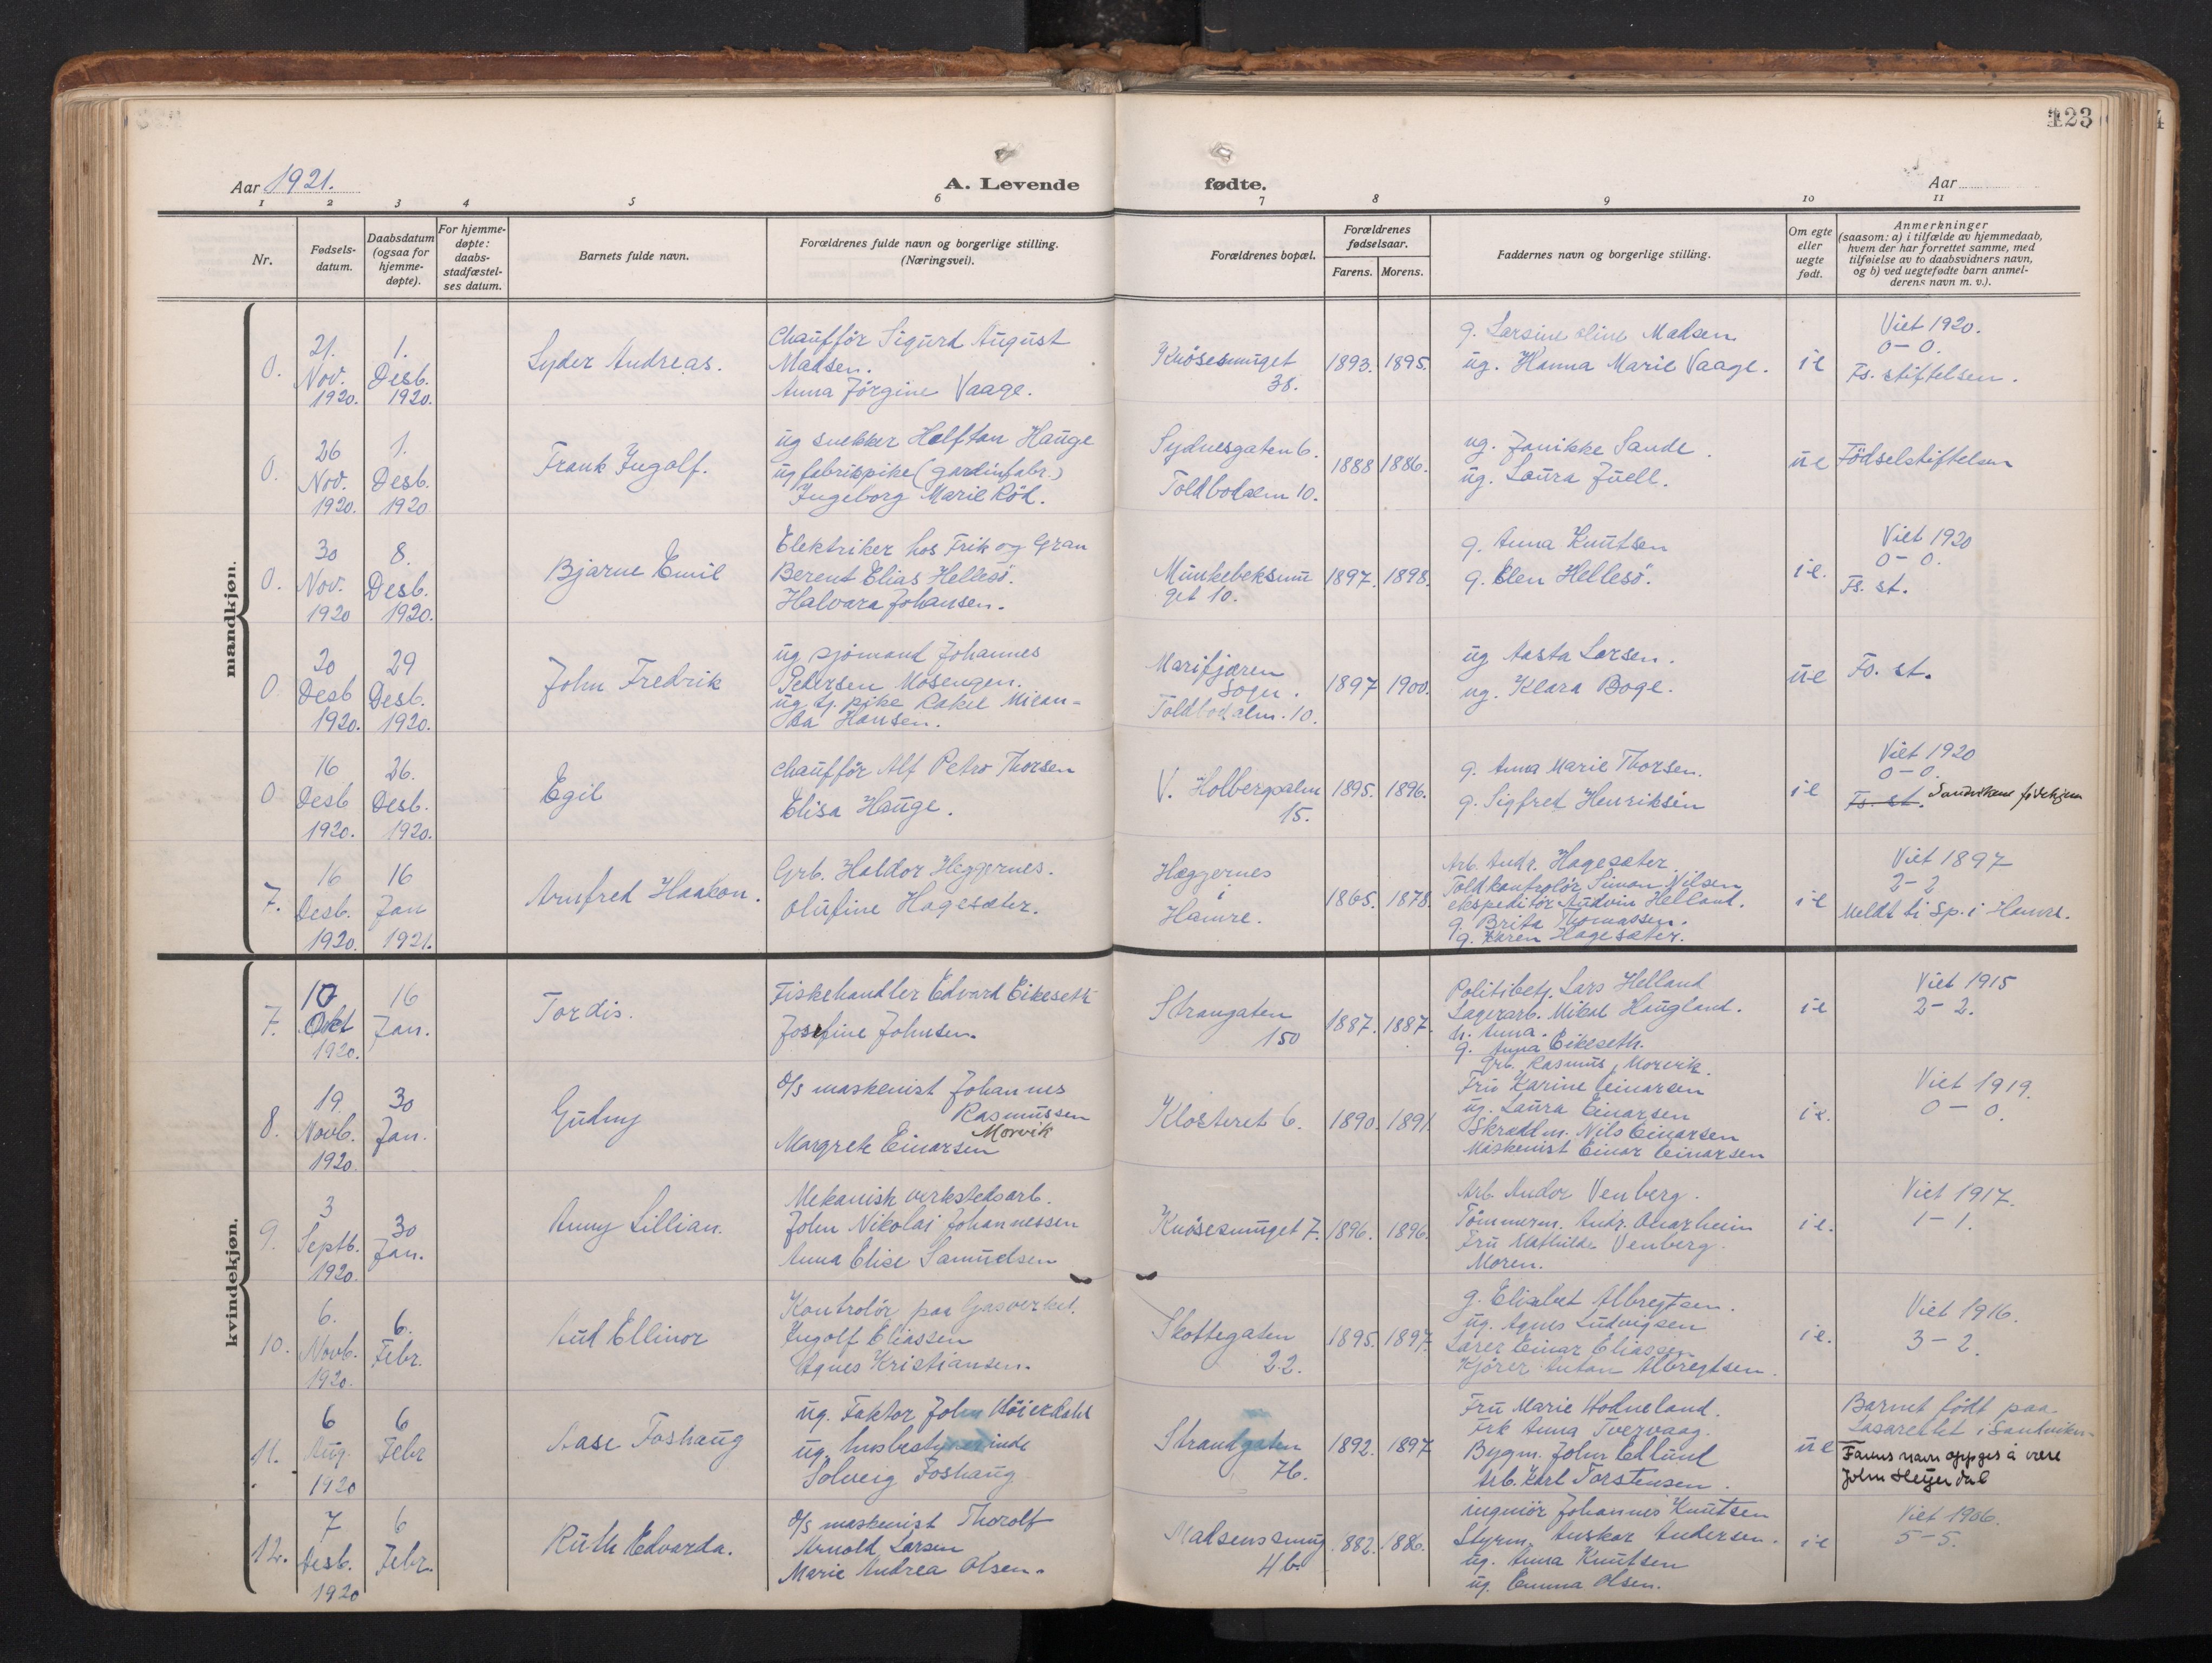 123
Aar 1921.
A. Levende
fødte.
Aar
1 2 3 4 5 6 7 8 9 10 11
Nr.
Fødsels-
datum.
Daabsdatum
(ogsaa for
hjemme-
døpte).
For hjemme-
døpte:
daabs-
stadfæstel-
ses datum.
Barnets fulde navn.
Forældrenes fulde navn og borgerlige stilling.
(Næringsvei).
Forældrenes bopæl.
Forældrenes
fødselsaar.
Farens. Morens.
Faddernes navn og borgerlige stilling.
Om egte
eller
uegte
født.
Anmerkninger
(saasom: a) i tilfælde av hjemmedaab,
hvem der har forrettet samme, med
tilføielse av to daabsvidners navn,
og b) ved uegtefødte barn anmel-
derens navn m. v.).
mandkjøn.
0.
21.
Nov.
1920.
1.
Desb.
1920.
Syder Andreas.
Chaufför Sigurd August
Madsen.
Anna Jörgine Vaage.
Knösesmuget
38.
1893. 1895.
g. Larsine Oline Madsen
ug. Hanna Marie Vaage.
ie
Viet 1920.
0-0.
Fs. stiftelsen.
0.
26
Nov.
1920.
1.
Desb.
1920
Frank Ingolf.
ug snekker Halftan Hauge
ug fabrikpike (gardinfabr.)
Ingeborg Marie Röd.
Sydnesgaten 6.
Toldbodalm 10.
1888 1886.
ug. Janikke Sande.
ug. Laura Juell.
ue
Födselstiftelsen
0.
30
Nov.
1920
8.
Desb.
1920.
Bjarne Emil
Elektriker hos Frik og Gran
Berent Elias Hellesö.
Halvara Johansen.
Munkebeksmu
get 10.
1897. 1898.
g. Anna Knutsen
g. Elen Hellesö.
ie.
Viet 1920
0-0.
Fs. st.
0.
20
Desb
1920.
29
Desb.
1920.
John Fredrik
ug sjömand Johannes
Pedersen Mosengen.
ug tj. pike Rakel Mican-
da Hansen.
Marifjæren
Sogn.
Toldbodalm. 10.
1897 1900.
ug Aasta Larsen.
ug. Klara Boge.
ue
Fs. st.
0
16
Desb
1920.
26.
Desb.
1920.
Egil
Chaufför Alf Petro Thorsen
Elisa Hauge.
V. Holbergsalm
15.
1895. 1896.
g. Anna Marie Thorsen.
g. Sigfred Henriksen
ie
Viet 1920
0-0.
Fs. st. Sandvikens fødehjem
7.
16
Desb.
1920.
16
Jan
1921.
Arnfred Haakon.
Grb. Haldor Heggernes.
Olufine Hagesæter.
Hæggernes
i
Hamre.
1865. 1878.
Arb. Andr. Hagesæter.
Toldkontrolör Simon Nilsen
ekspeditör Audvin Helland.
g. Brita Thomassen.
g. Karen Hagesæter.
ie
Viet 1897
2-2
Meldt ti Sp. i Hamre.
kvindekjøn.
7.
10
Okt
1920.
16
Jan.
Tordis.
Fiskehandler Edvard Eikeseth
Josefine Johnsen.
Strangaten
150
1887. 1887.
Politibetj. Lars Helland
Lagerarb. Mikal Haugland.
h. Anna.
g. Anna Eikeseth.
ie
Viet 1915
2-2.
8.
19.
Novb.
1920.
30
Jan.
Gudny
D/s maskenist Johannes
Rasmussen
Morvik
Margrete Einarsen
Klosteret 6.
1890. 1891.
Grb. Rasmus Morvik.
Fru Karine Einarsen
ug. Laura Einarsen
Skræddm. Nils Einarsen
Maskenist Einar Einarsen
ie.
Viet 1919.
0-0.
9.
3
Septb.
1920.
30
Jan.
Anny Lillian.
Mekanisk verkstedsarb.
John Nikolai Johannessen
Anna Elise Samuelsen
Knösesmuget 7.
1896. 1896.
Arb. Andor Venberg.
Tömmerm. Andr. Onarheim
Fru Mathilde Venberg.
Moren.
ie.
Viet 1917.
1-1.
10.
6.
Novb.
1920.
6.
Febr.
Aud Ellinor
Kontrolör paa Gasverket.
Ingolf Eliassen
Agnes Kristiansen.
Skottegaten
22.
1895. 1897.
g. Elisabet Albregtsen.
ug. Agnes Ludvigsen
Lærer Einar Eliassen
Kjörer Anton Albregtsen.
ie.
Viet 1916.
3-2.
11.
6
Aug.
1920
6
Febr
Aase Foshaug
ug. Faktor John Höierdahl
ug. husbestyrerinde
Solveig Foshaug
Strandgaten
76.
1892. 1897
Fru Marie Hodneland.
Frk Anna Tvervaag.
Bygm. John Edlund
Arb. Karl Torstensen.
ue
Barnet födt paa
Lasarettet i Sandviken
Farens navn oppges å være
John Heyerdal
12.
7
Desb.
1920
6
Febr.
Ruth Edvarda.
D/s maskenist Thorolf
Arnold Larsen
Marie Andrea Olsen.
Madsenssmug
4b.
1882. 1886.
ingeniör Johannes Knutsen
Styrm. Anskar Andersen.
ug. Anna Knutsen
ug. Emma Olsen.
ie
Viet 1906.
5-5.